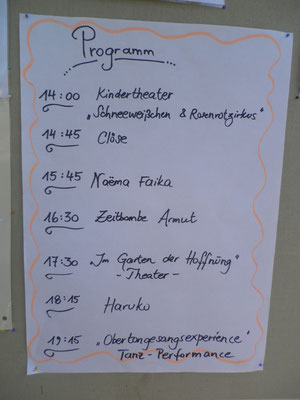 Programm
14:00 Kindertheater
„Schneeweißchen & Rosenrotzirkus"
14:45 Clôse
15:45 Naëma Faika
16:30 Zeitbombe Armut
17:30 „Im Garten der Hoffnüng"
- Theater -
18:15 Haruko
19:15 „Obertongesangsexperience"
Tanz-Performance